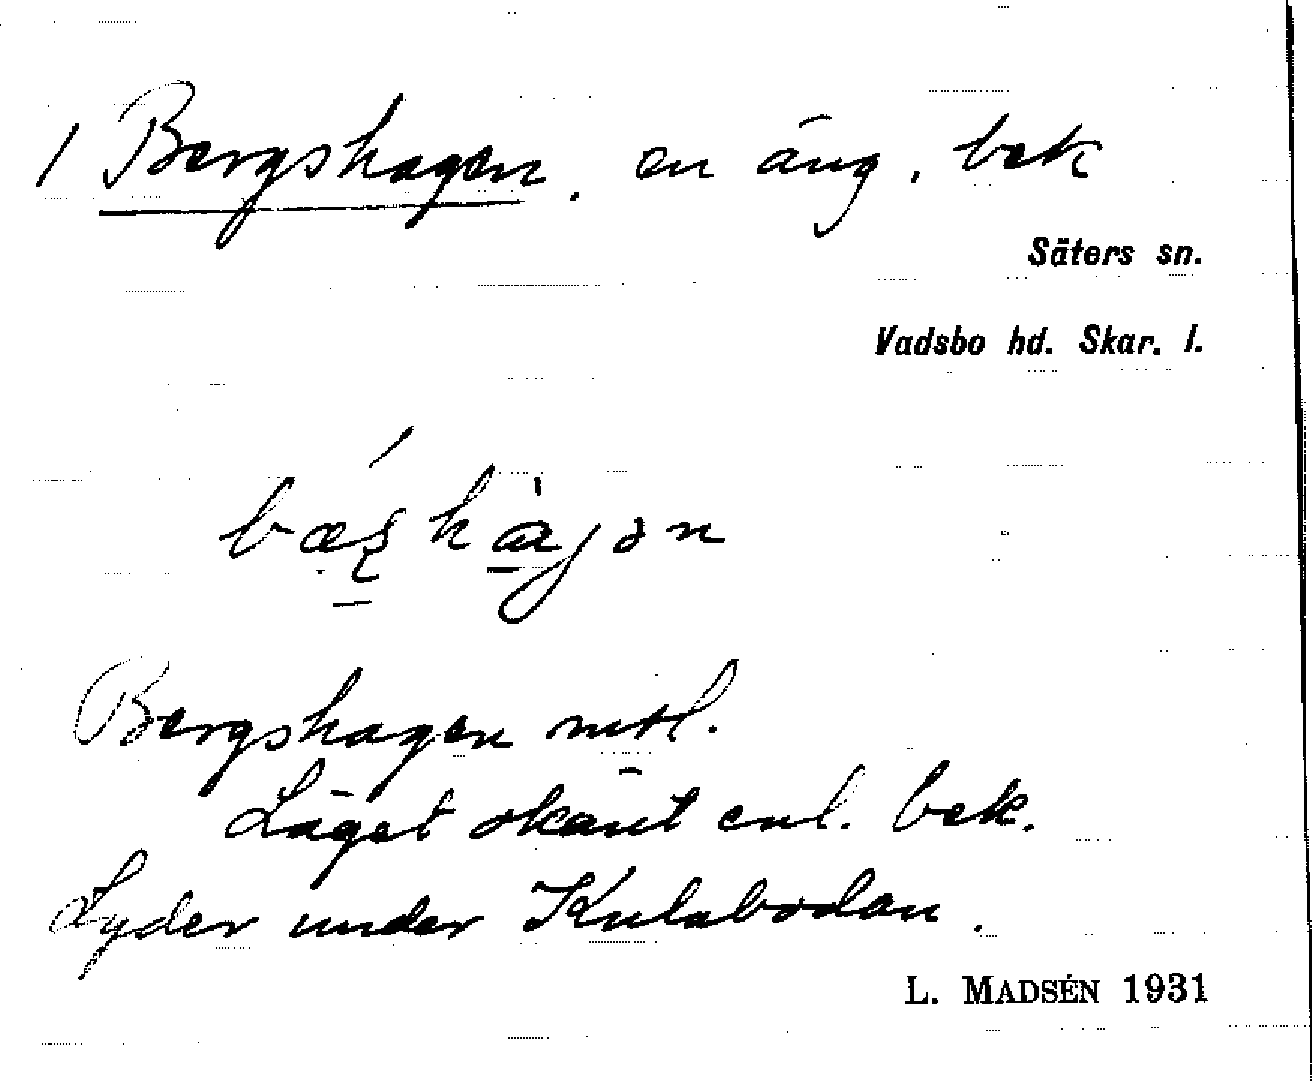 1 Bergshagen. en äng, bek
Säters sn.
Vadsbo hd. Skar. l.
Bergshagen mtl.
Läget okänt enl. bek.
Lyder under Kulabodan.
L. MADSÉN 1931